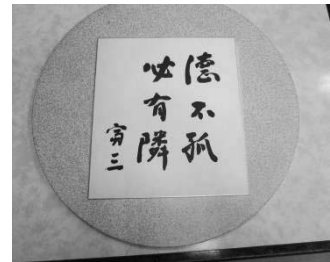 德不孤
必有隣
寛三